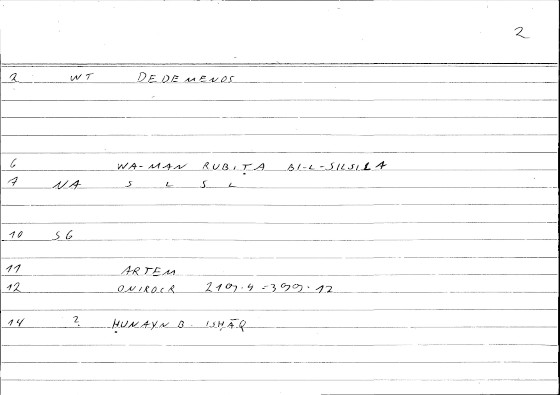 2
2 WT DEDEMENOS
6 WA-MAN RUBIṬA BI-L-SILSILA
7 NA S L S L
10 SG
11 ARTEM
12 ONIROCR 219,4 = 399,12
14 ? ḤUNAYN B. ISḤĀQ